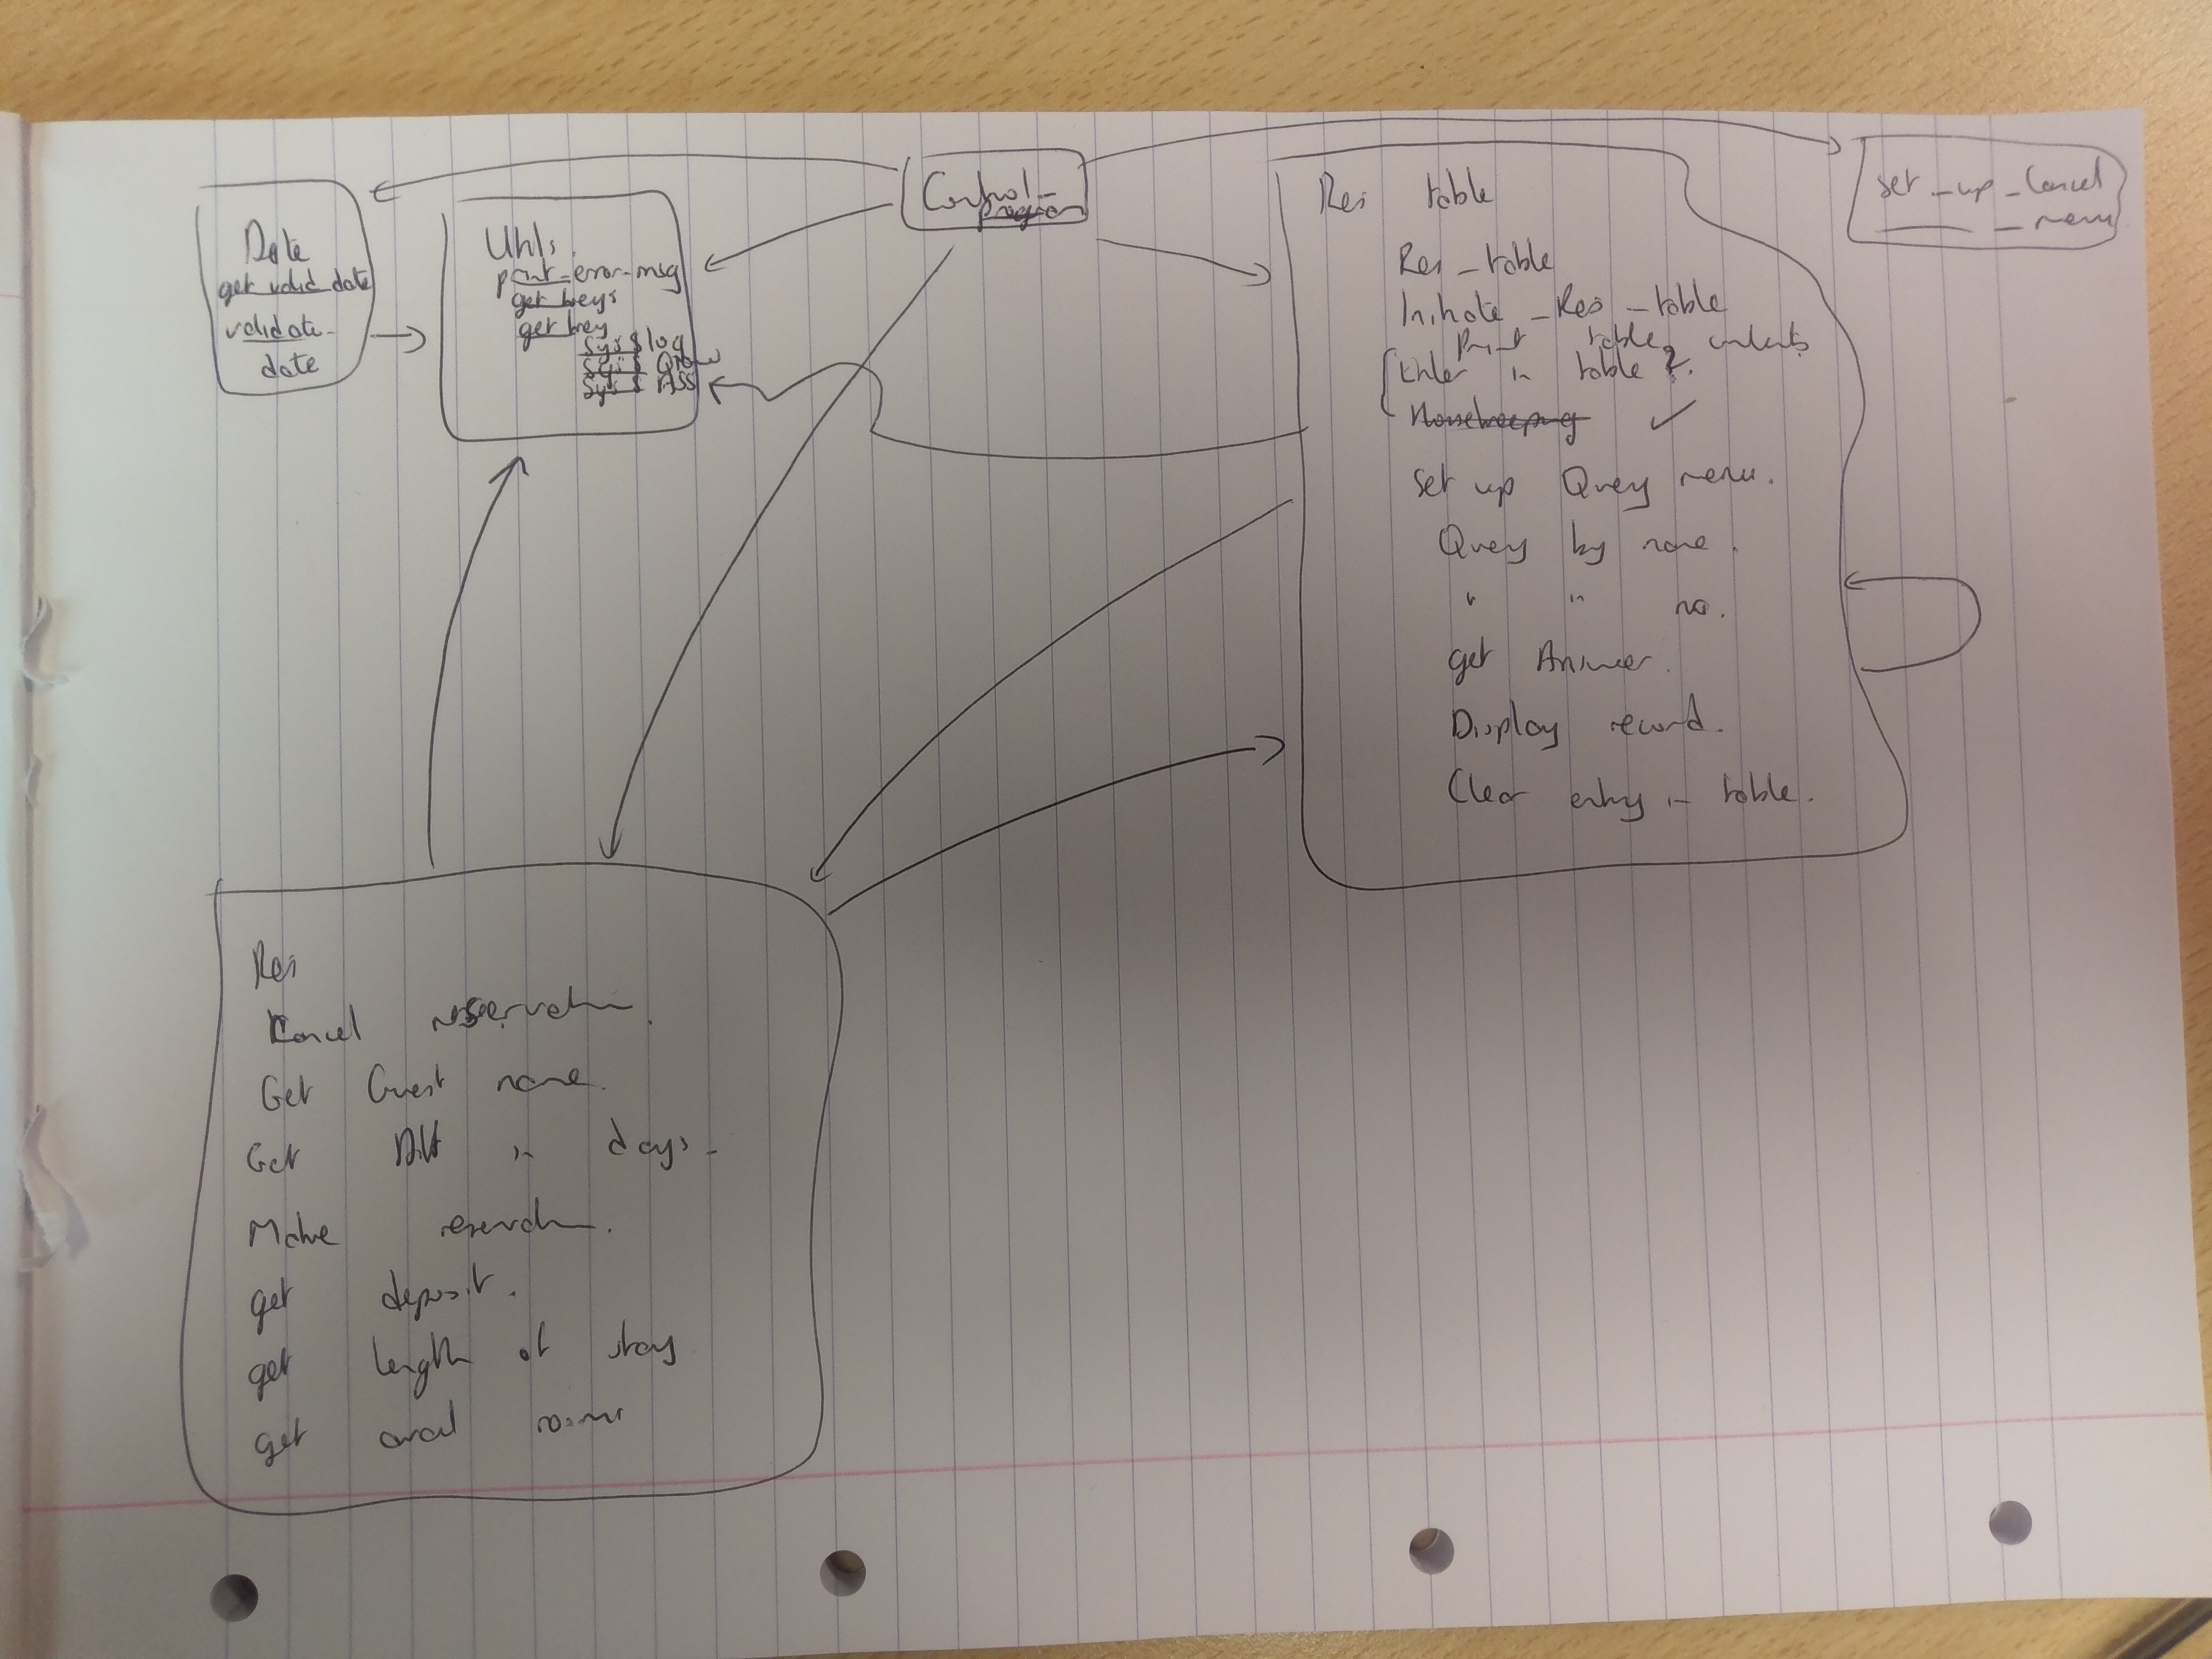 Control_
program
Date
get_valid_date
validate_
date
Utils.
print_error_msg
get keys
get key
Sys $ log
Sys $ QIow
Sys $ ASS
Res table
Res_table
Initiate_Res_table
Print table contents
Enter in table ?.
Housekeeping ✓
set up Query menu.
Query by name.
" " no.
get Answer.
Display record.
Clear entry in table.
set_up_Cancel
_menu
Res
Cancel reservation.
Get Guest name.
Get Diff in days.
Make reservation.
get deposit.
get length of stay
get avail rooms